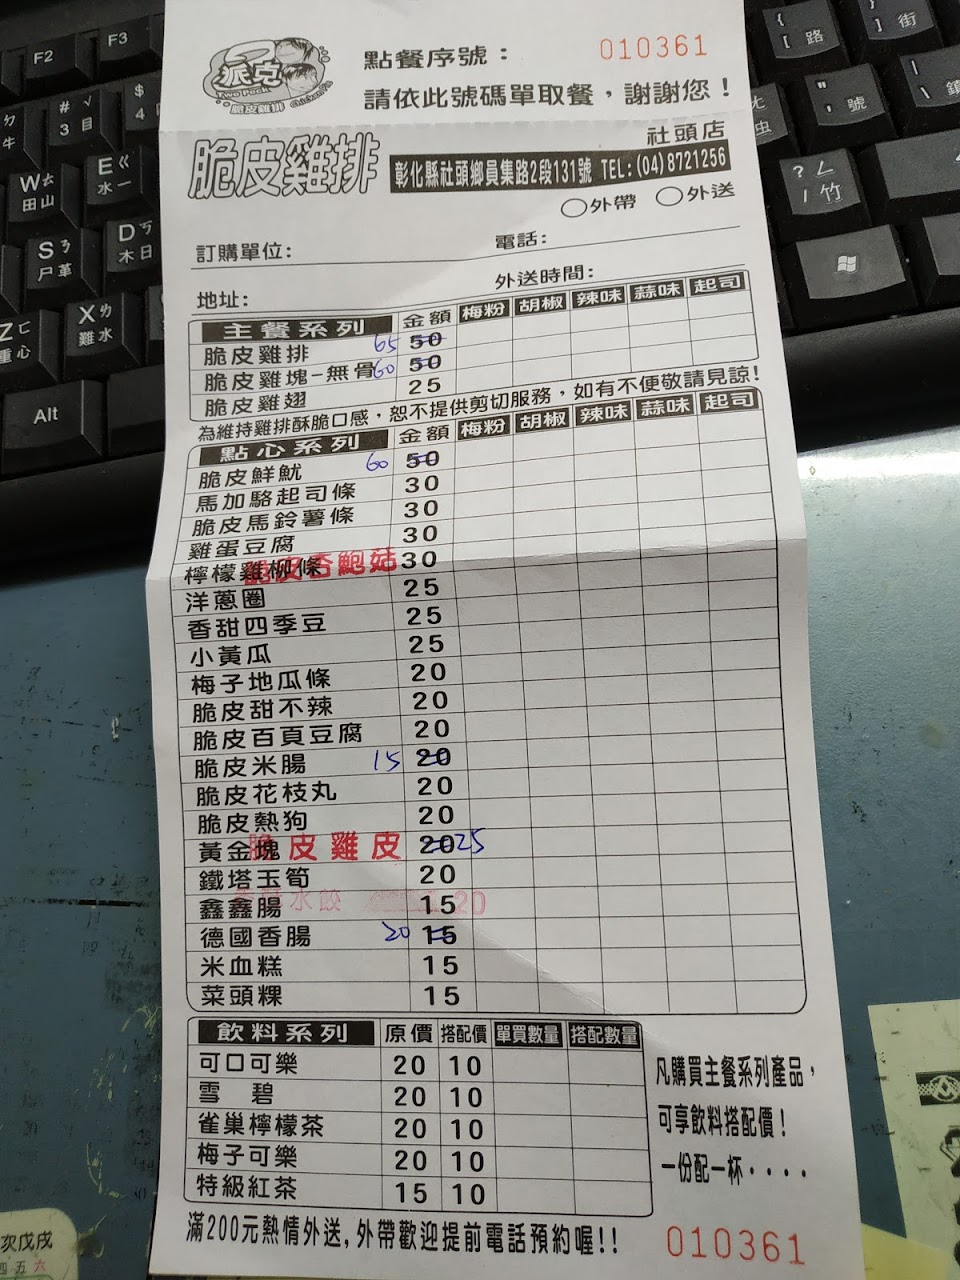 派克
Two Peck
脆皮雞排
點餐序號：
010361
請依此號碼單取餐，謝謝您！
脆皮雞排
社頭店
彰化縣社頭鄉員集路2段131號 TEL:(04)8721256
○外帶 ○外送
訂購單位:
電話:
地址:
外送時間:
主餐系列 金額 梅粉 胡椒 辣味 蒜味 起司
脆皮雞排 65 50
脆皮雞塊-無骨 60 50
脆皮雞翅 25
為維持雞排酥脆口感，恕不提供剪切服務，如有不便敬請見諒!
點心系列 金額 梅粉 胡椒 辣味 蒜味 起司
脆皮鮮魷 60 50
馬加駱起司條 30
脆皮馬鈴薯條 30
雞蛋豆腐 30
檸檬雞柳條 脆皮杏鮑菇 30
洋蔥圈 25
香甜四季豆 25
小黃瓜 25
梅子地瓜條 20
脆皮甜不辣 20
脆皮百頁豆腐 20
脆皮米腸 15 20
脆皮花枝丸 20
脆皮熱狗 20
黃金塊 脆皮雞皮 20 25
鐵塔玉筍 20
鑫鑫腸 水餃 15 20
德國香腸 20 15
米血糕 15
菜頭粿 15
飲料系列 原價 搭配價 單買數量 搭配數量
可口可樂 20 10
雪 碧 20 10
雀巢檸檬茶 20 10
梅子可樂 20 10
特級紅茶 15 10
凡購買主餐系列產品，
可享飲料搭配價！
一份配一杯‧‧‧‧
滿200元熱情外送,外帶歡迎提前電話預約喔!!
010361
F2
F3
Alt
次戊戌
四 五 六